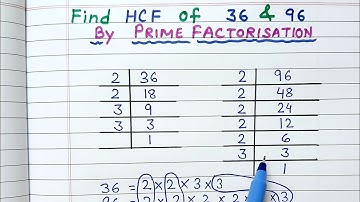 Find HCF of 36 & 96
By PRIME FACTORISATION
2 | 36
2 | 18
3 | 9
3 | 3
1
2 | 96
2 | 48
2 | 24
2 | 12
2 | 6
3 | 3
1
36 = 2 × 2 × 3 × 3
96 = 2 × 2 × 2 × 2 × 2 × 3